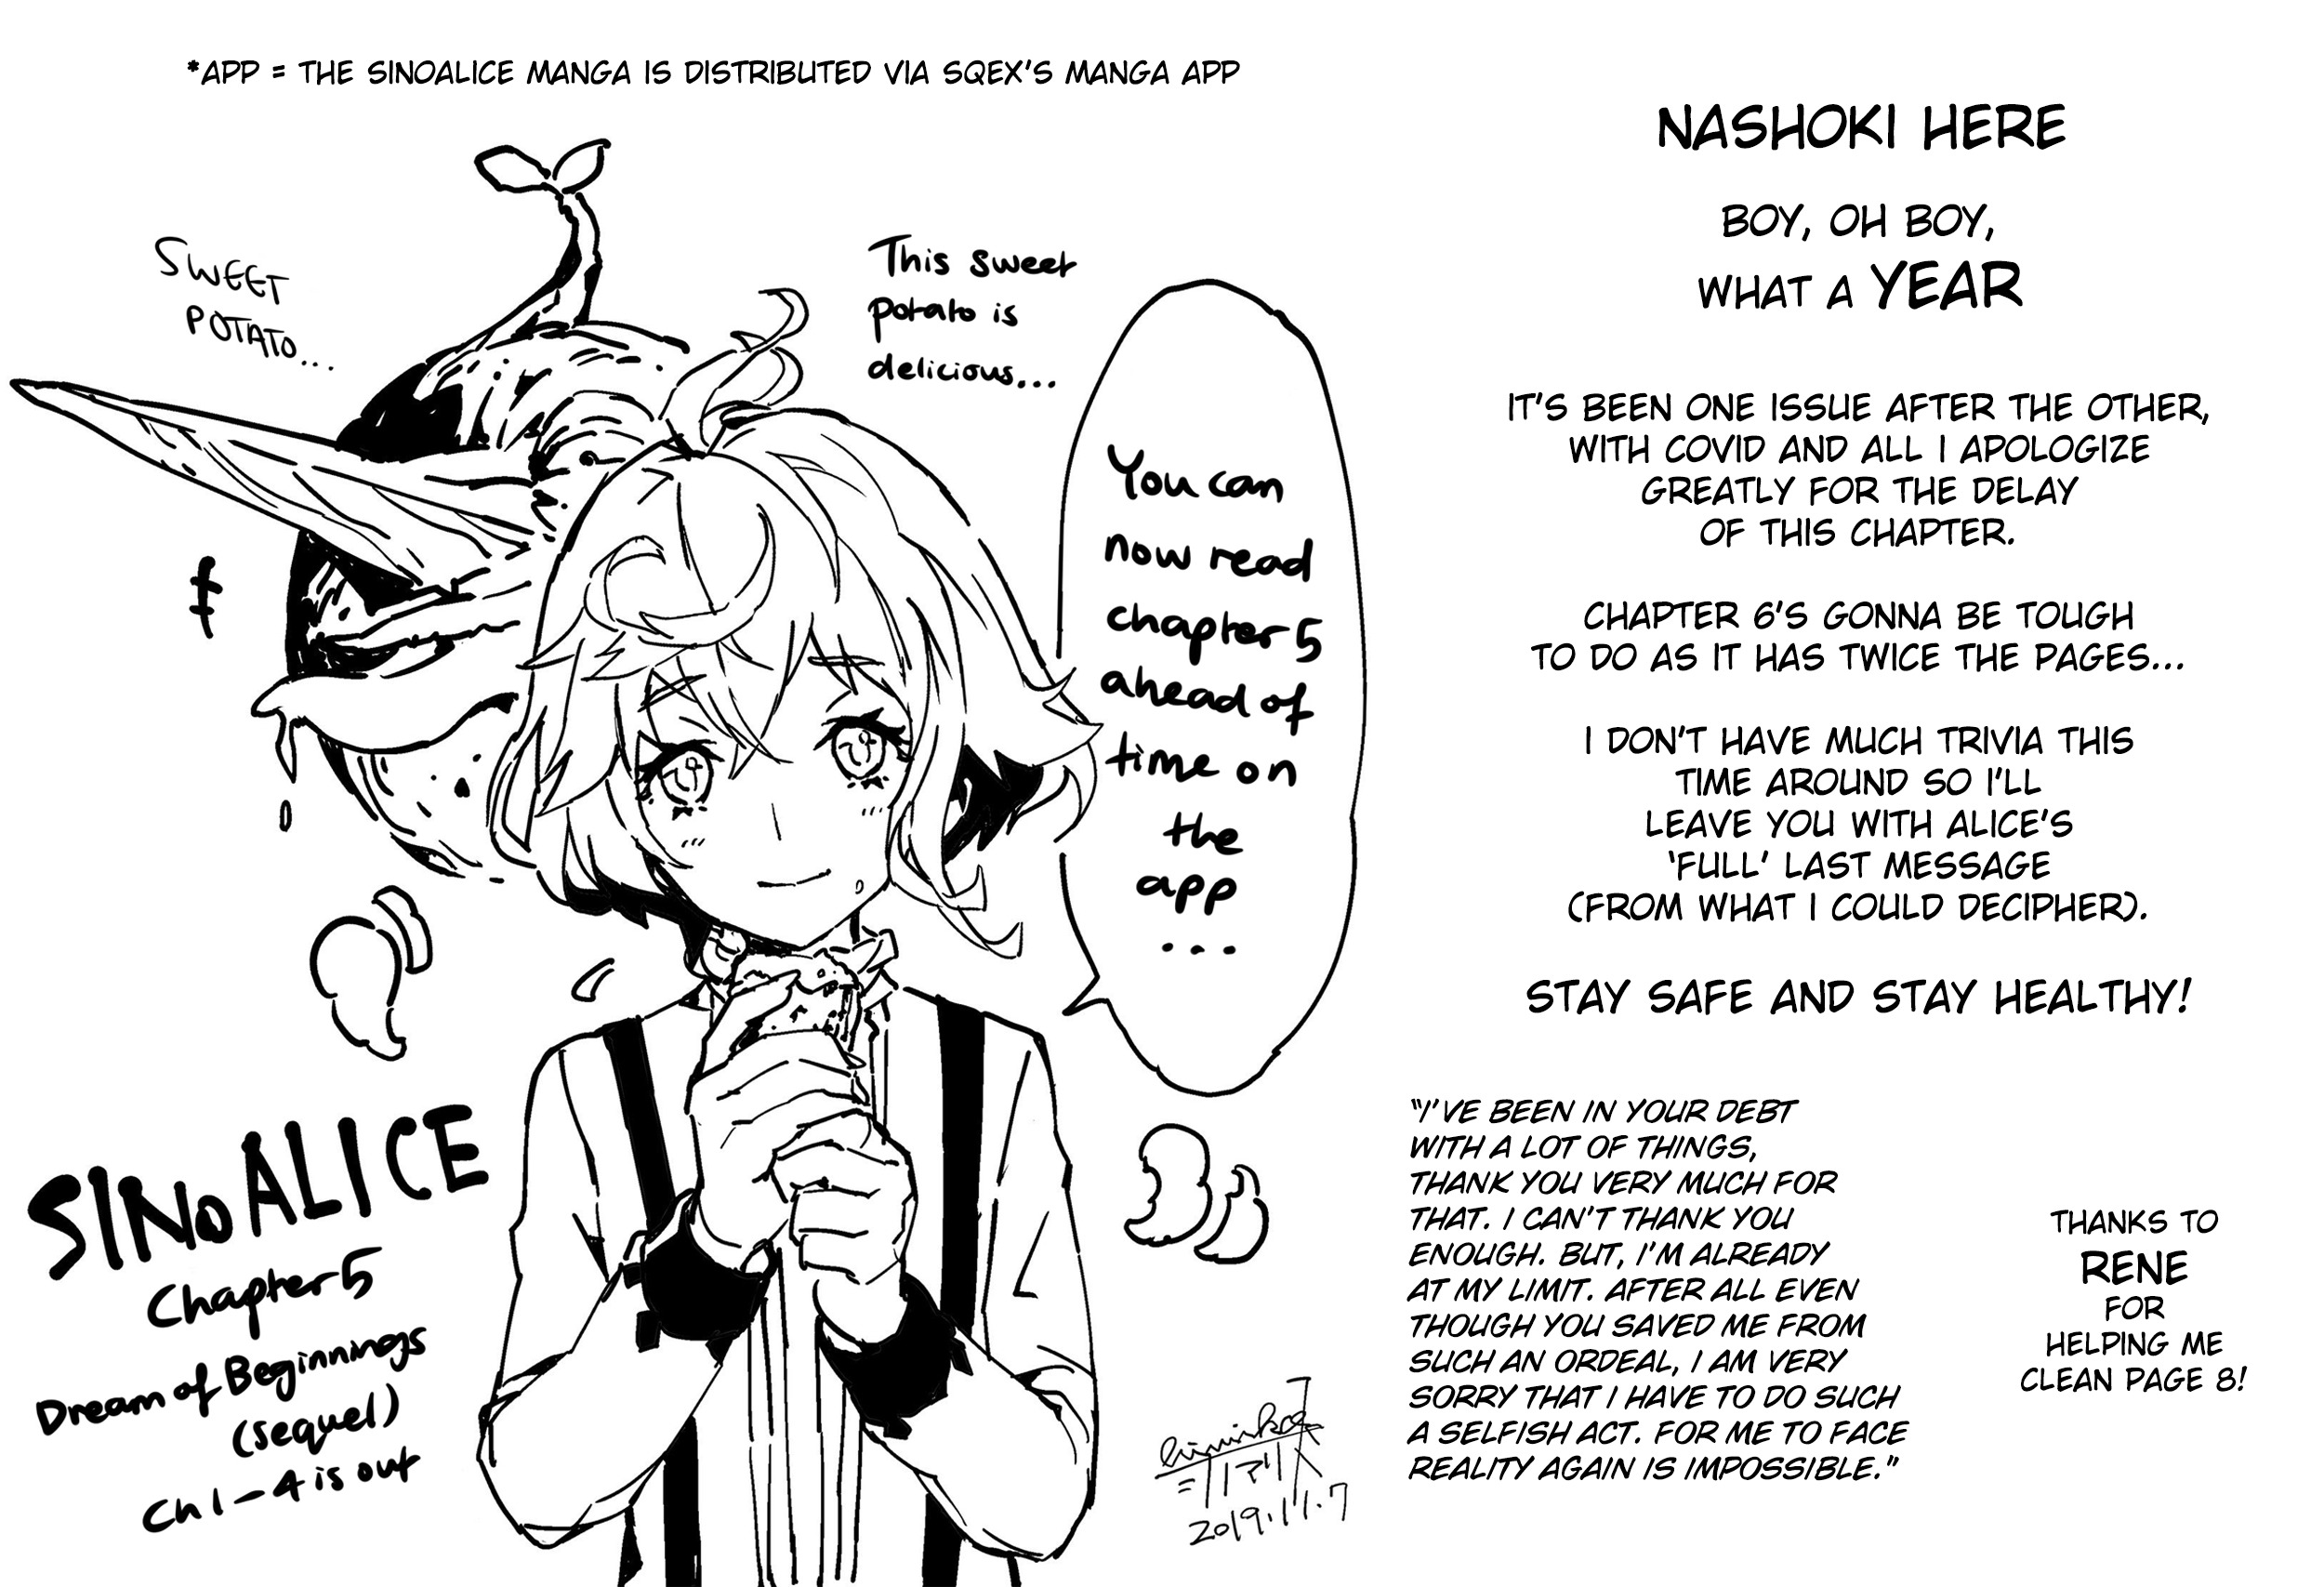 *APP = THE SINOALICE MANGA IS DISTRIBUTED VIA SQEX'S MANGA APP
SWEET
POTATO...
This sweet
potato is
delicious...
You can
now read
chapter 5
ahead of
time on
the
app
...
SINOALICE
Chapter 5
Dream of Beginnings
(sequel)
Ch 1-4 is out
2019.11.7
NASHOKI HERE
BOY, OH BOY,
WHAT A YEAR
IT'S BEEN ONE ISSUE AFTER THE OTHER,
WITH COVID AND ALL I APOLOGIZE
GREATLY FOR THE DELAY
OF THIS CHAPTER.
CHAPTER 6'S GONNA BE TOUGH
TO DO AS IT HAS TWICE THE PAGES...
I DON'T HAVE MUCH TRIVIA THIS
TIME AROUND SO I'LL
LEAVE YOU WITH ALICE'S
'FULL' LAST MESSAGE
(FROM WHAT I COULD DECIPHER).
STAY SAFE AND STAY HEALTHY!
"I'VE BEEN IN YOUR DEBT
WITH A LOT OF THINGS,
THANK YOU VERY MUCH FOR
THAT. I CAN'T THANK YOU
ENOUGH. BUT, I'M ALREADY
AT MY LIMIT. AFTER ALL EVEN
THOUGH YOU SAVED ME FROM
SUCH AN ORDEAL, I AM VERY
SORRY THAT I HAVE TO DO SUCH
A SELFISH ACT. FOR ME TO FACE
REALITY AGAIN IS IMPOSSIBLE."
THANKS TO
RENE
FOR
HELPING ME
CLEAN PAGE 8!